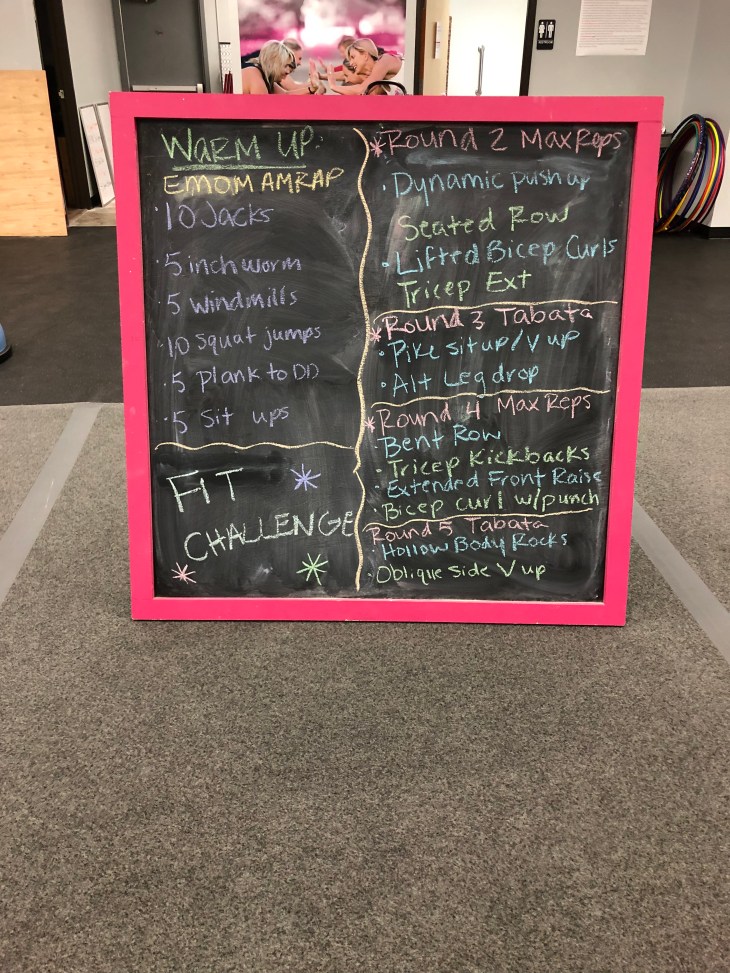 WARM UP:
EMOM AMRAP
10 Jacks
5 inch worm
5 windmills
10 squat jumps
5 Plank to DD
5 Sit ups
FIT
CHALLENGE
*Round 2 Max Reps
• Dynamic push up
Seated Row
• Lifted Bicep Curls
Tricep Ext
*Round 3 Tabata
• Pike situp/V up
• Alt Leg drop
*Round 4 Max Reps
• Bent Row
• Tricep Kickbacks
• Extended Front Raise
• Bicep curl w/punch
Round 5 Tabata
• Hollow Body Rocks
• Oblique Side V up